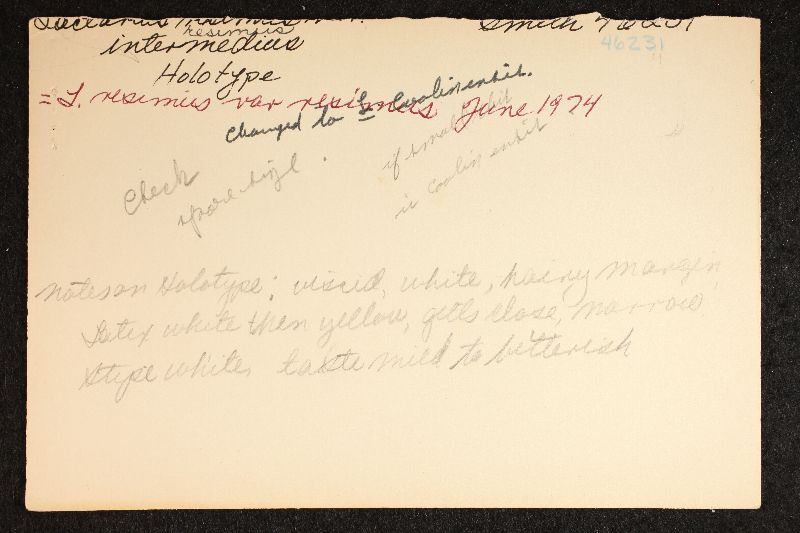 Lactarius resimus Smith 46231
resimus 46231
intermedius
Holotype
= L. resimus var resimus June 1974
changed to L
Check if small
spore size. is
notes on Holotype: viscid, white, hairy margin
Latex white then yellow, gills close, narrow
Stipe white taste mild to bitterish